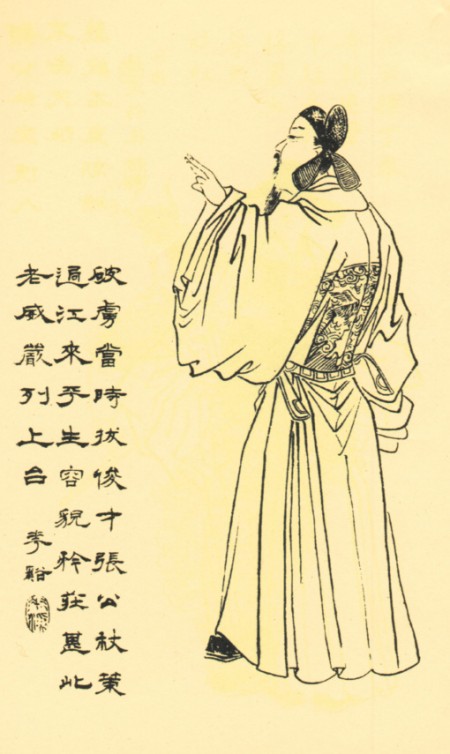 破虜當時拔俊才張公杖策
過江來平生容貌矜莊甚此
老威嚴列上台